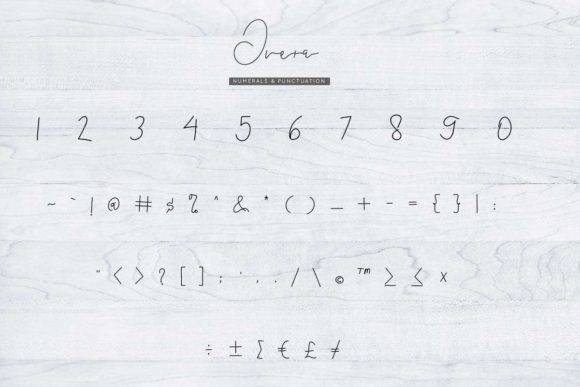 Overa
NUMERALS & PUNCTUATION
1 2 3 4 5 6 7 8 9 0
~ ` ! @ # $ % ^ & * ( ) _ + - = { } | :
" < > ? [ ] ; ' , . / \ © ™ ≥ ≤ x
÷ ± ∑ € £ ≠